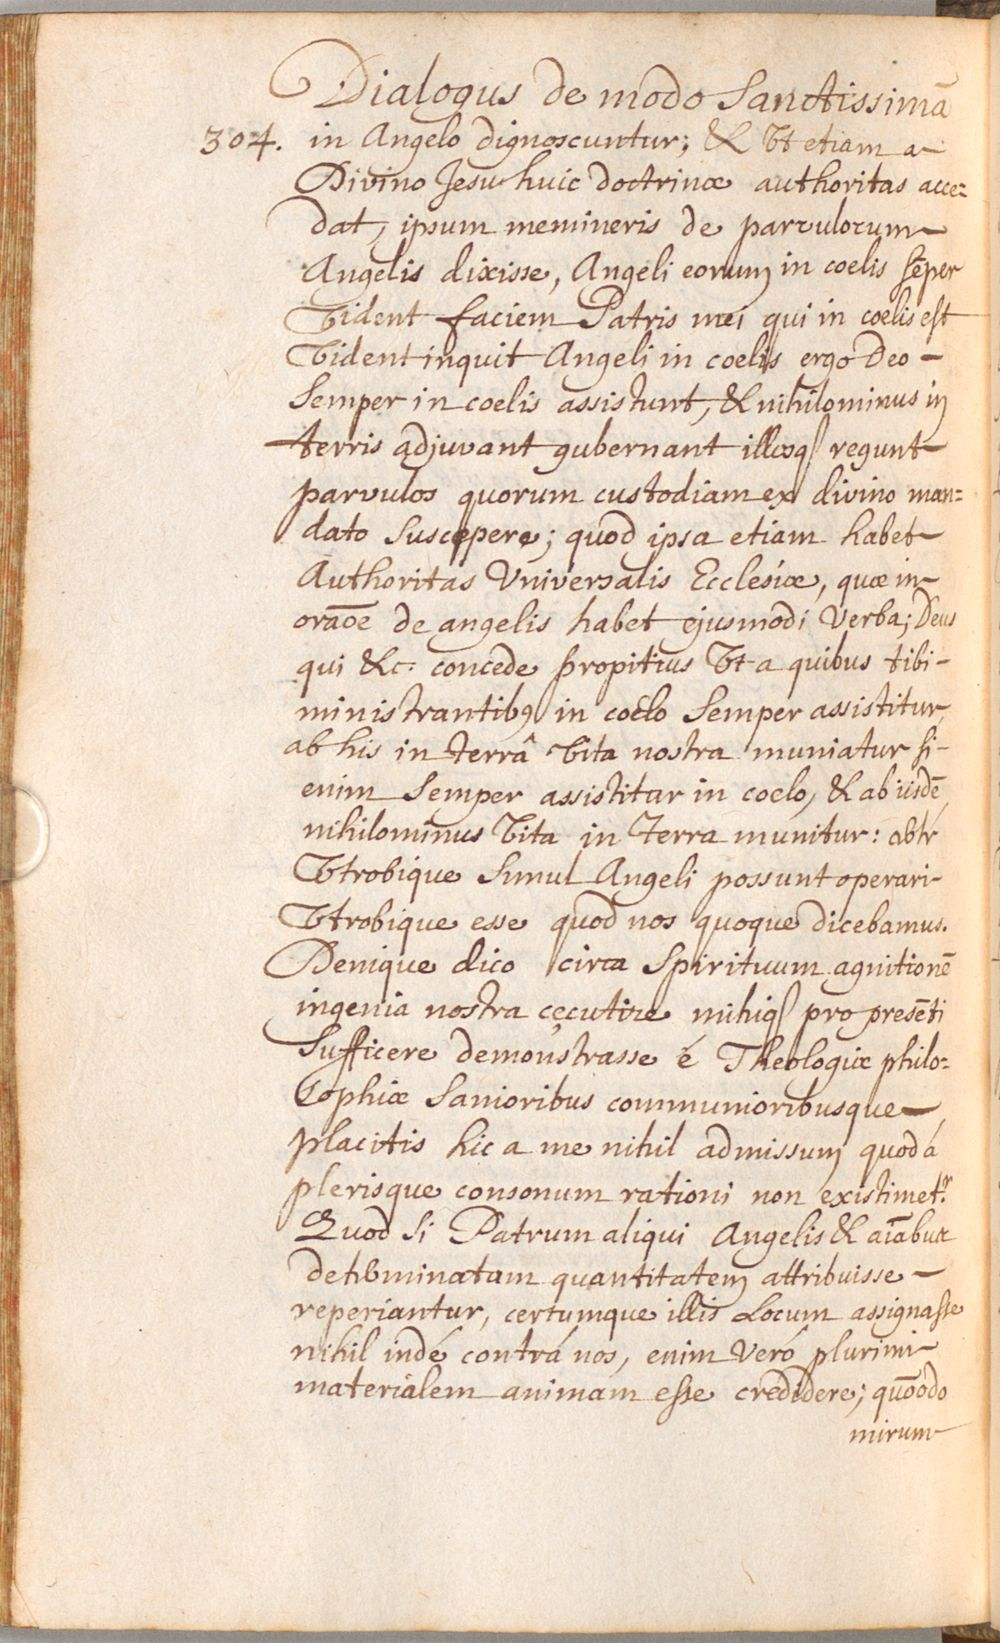 Dialogus de modo Sanctissimā
304. in Angelo dignoscuntur; & Vt etiam a
Divino Jesu huic doctrinæ authoritas acce=
dat, ipsum memineris de parvulorum
Angelis dixisse, Angeli eorum in coelis sēper
Vident faciem Patris mei qui in coelis est
Vident inquit Angeli in coelis ergo Deo -
Semper in coelis assistunt, & nihilominus in
terris adjuvant gubernant illosq regunt
parvulos quorum custodiam ex divino man=
dato suscepere; quod ipsa etiam habet
Authoritas Vniversalis Ecclesiæ, quæ in
oraōe de angelis habet ejusmodi Verba; Deus
qui &c. concede propitius Vt a quibus tibi -
ministrantibꝯ in coelo Semper assistitur,
ab his in terrâ Vita nostra muniatur si -
enim Semper assistitur in coelo, & ab iisdē
nihilominus Vita in Terra munitur:
Vtrobique Simul Angeli possunt operari -
Vtrobique esse quod nos quoque dicebamus.
Denique dico circa Spirituum agnitionē
ingenia nostra cęcutire mihiq pro presēti
Sufficere demonstrasse é Theologiæ philo=
sophiæ Sanioribus communioribusque
placitis hic a me nihil admissum quod á
plerisque consonum rationi non existimetʳ.
Quod si Patrum aliqui Angelis & aīabus
determinatam quantitatem attribuisse -
reperiantur, certumque illis Locum assignasse
nihil indé contrá nos, enim Veró plurimi
materialem animam esse credidere; quōodo
mirum